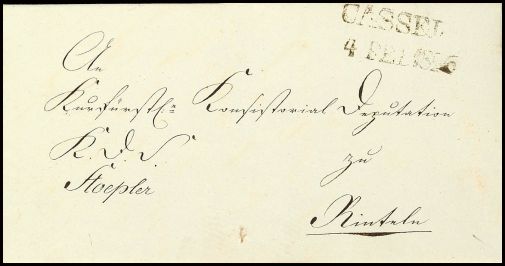 CASSEL
4 FEB
An
Kurfürstl: Konsistorial Deputation
K. D. S.
zu
Rinteln